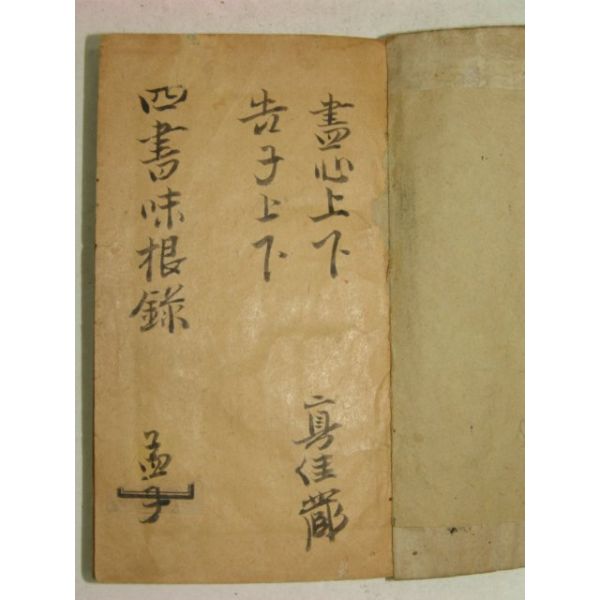 盡心上下
真佳
告子上下
四書味根錄
孟子